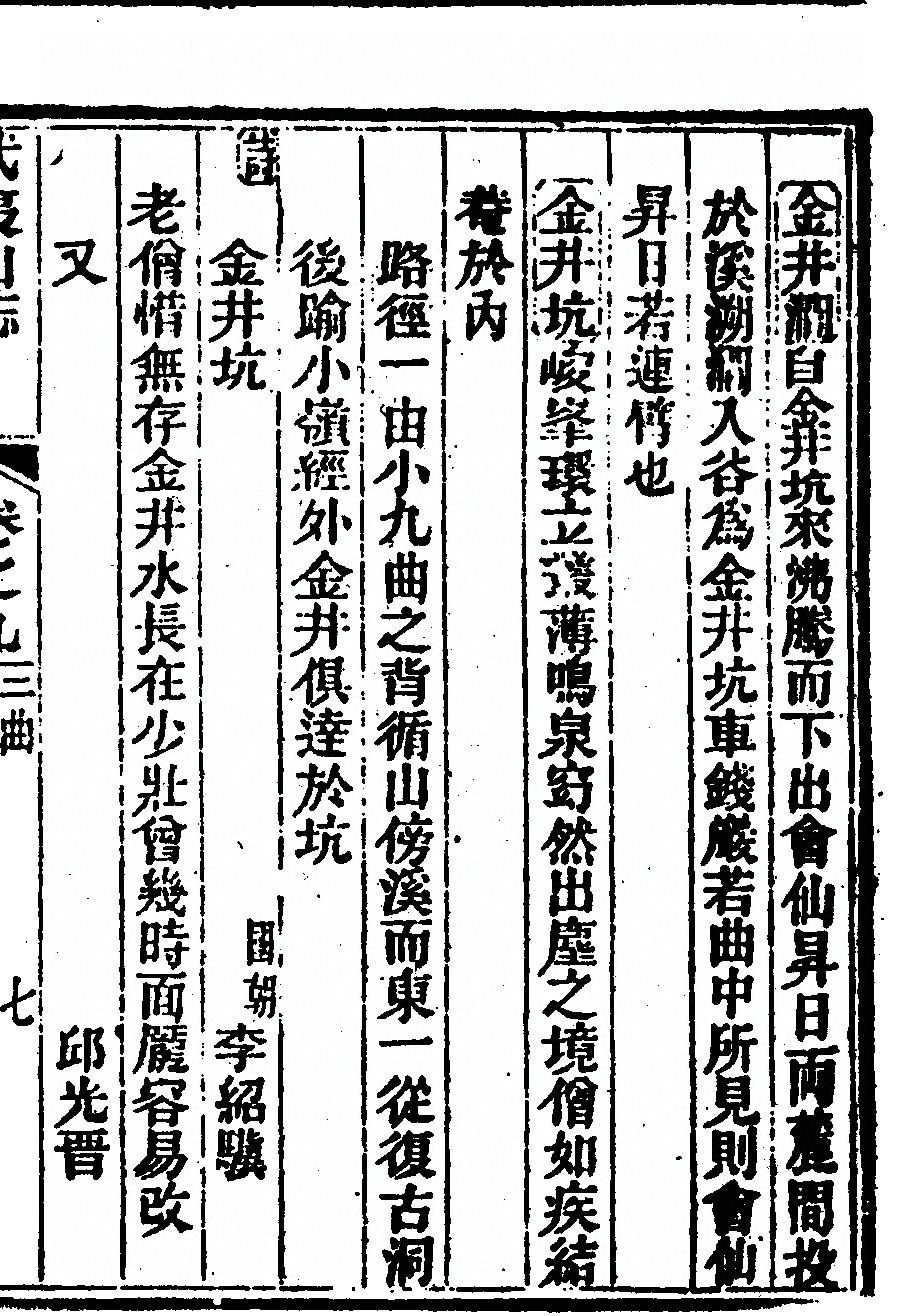 金井澗自金井坑來沸騰而下出會仙昇日兩麓間投
於溪溯澗入谷爲金井坑車錢巖若曲中所見則會仙
昇日若連臂也
金井坑峻峯環立淺薄鳴泉窈然出塵之境僧如疾結
菴於內
路徑一由小九曲之背循山傍溪而東一從復古洞
後踰小嶺經外金井俱達於坑
詩
金井坑
國朝 李紹驥
老僧惜無存金井水長在少壯曾幾時面龐容易改
又
邱光晋
武夷山志
卷之九 三曲
七